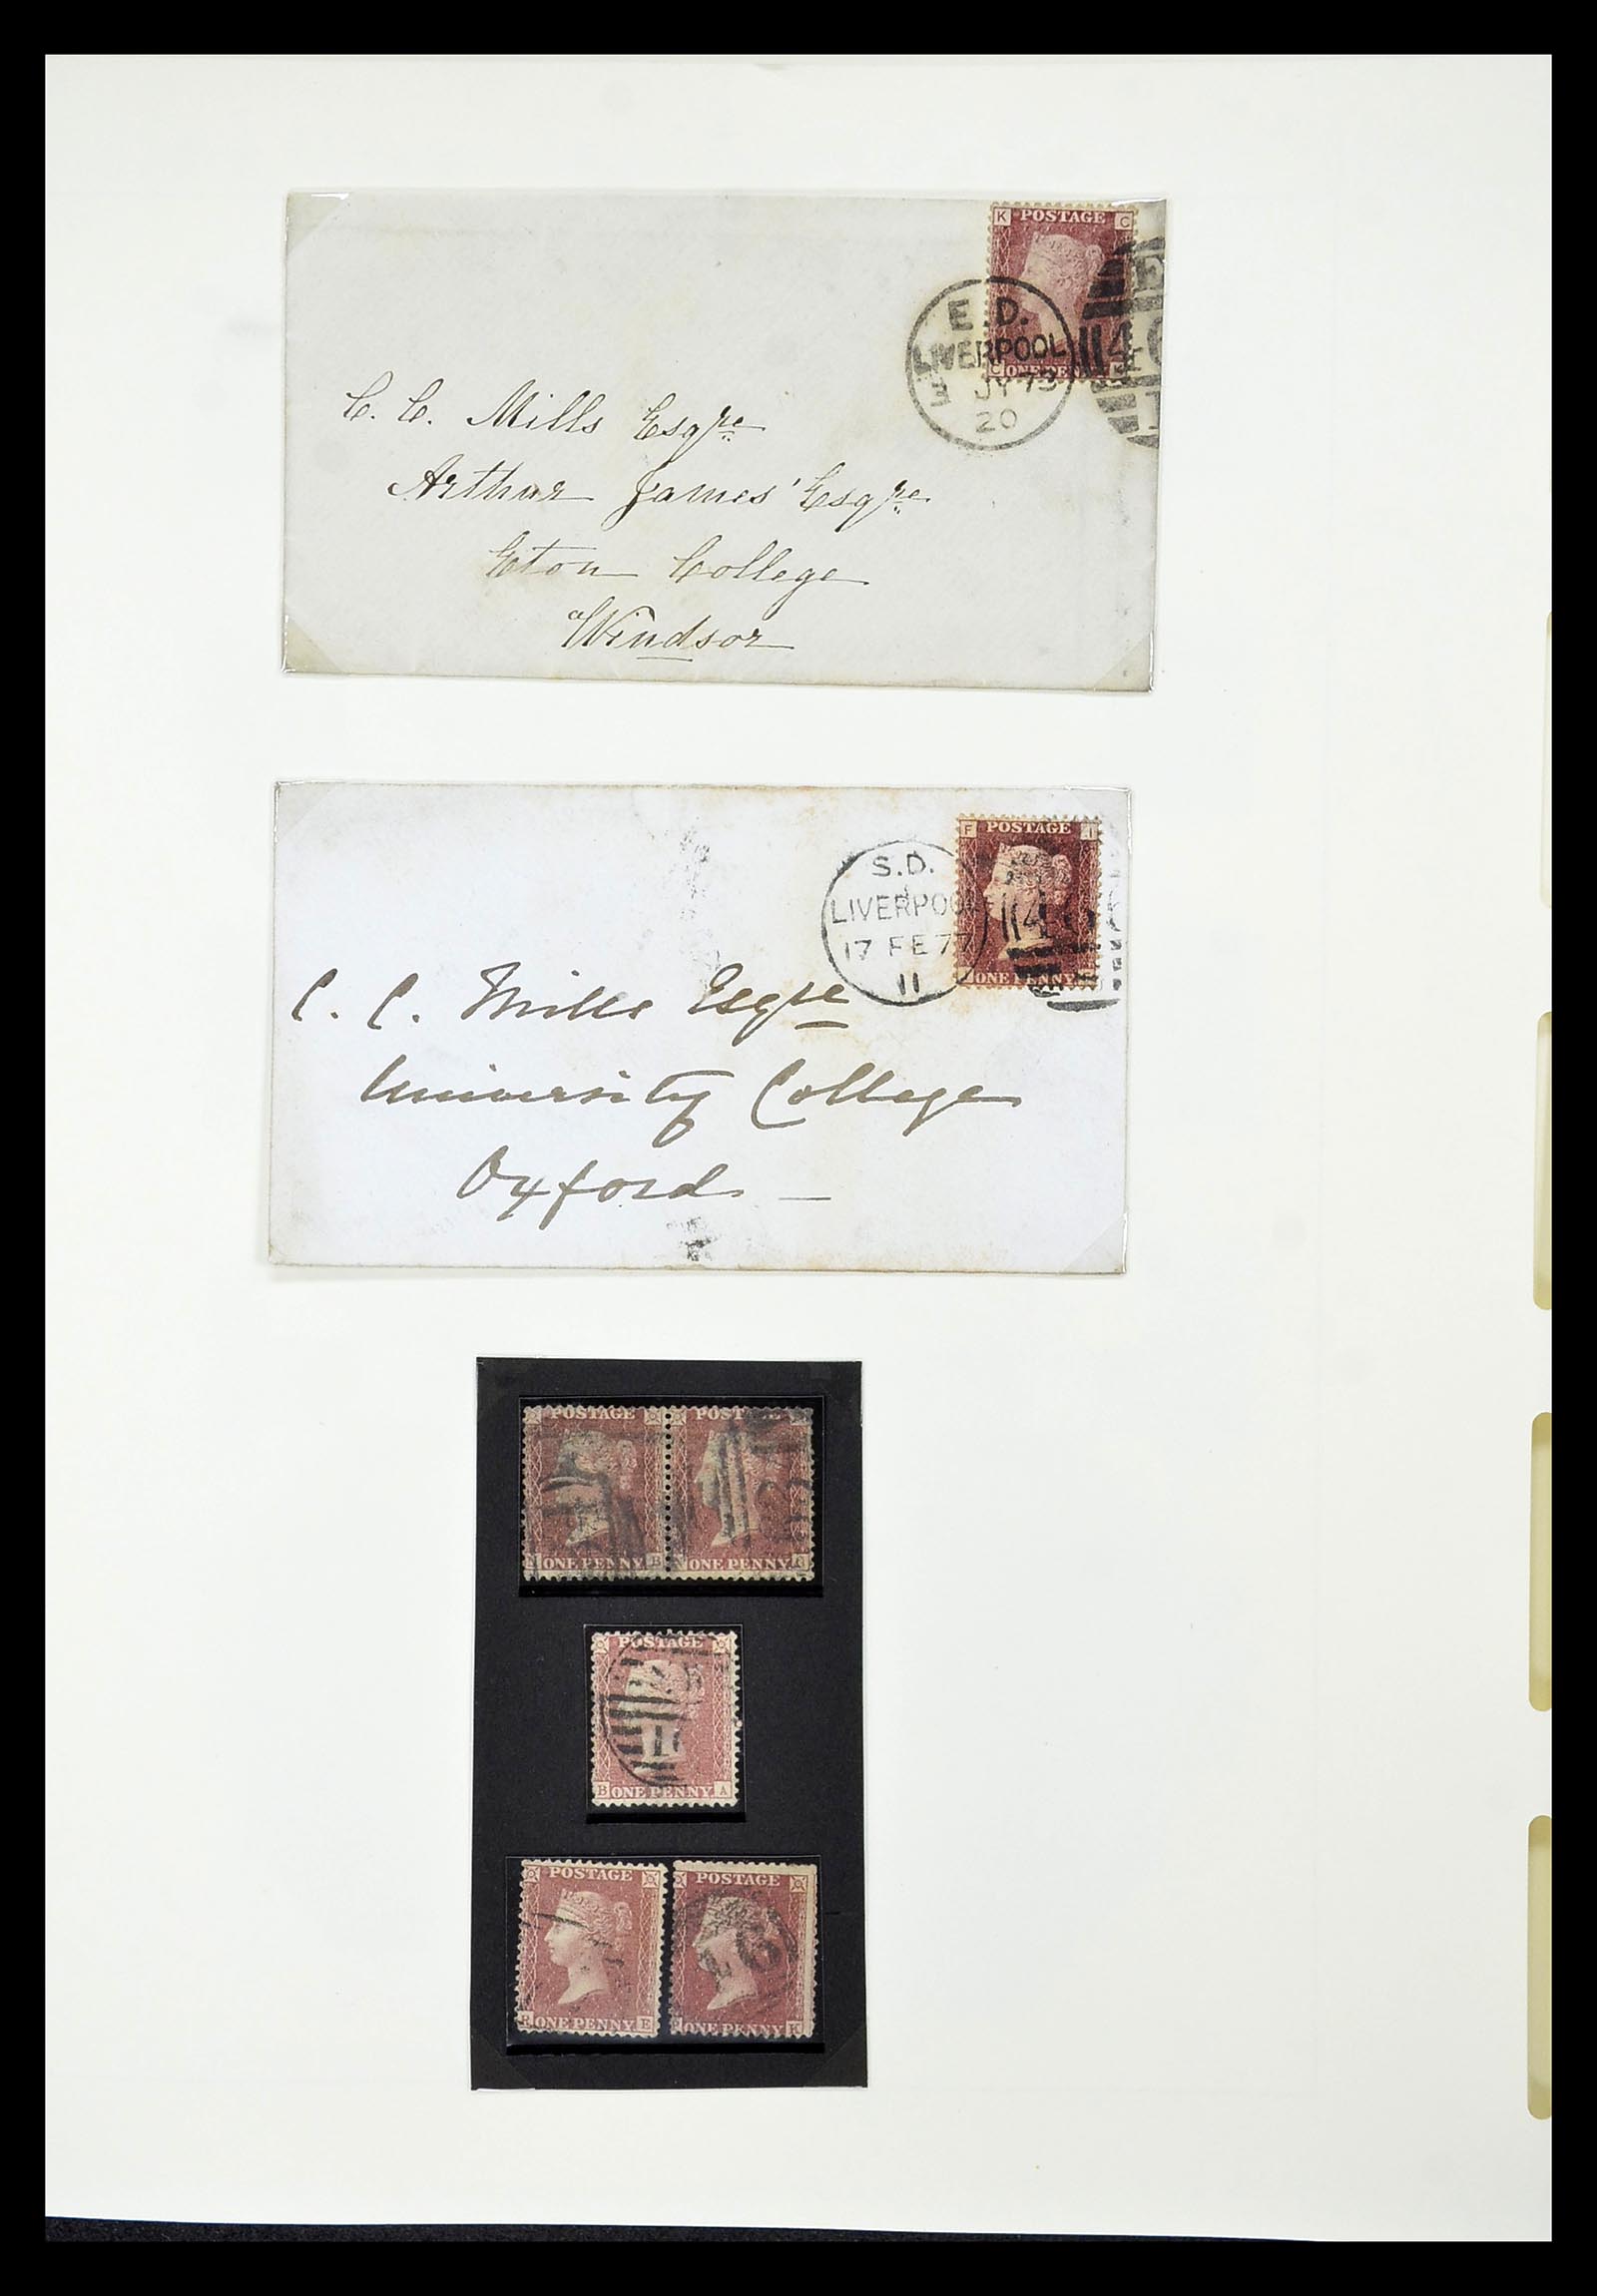 K POSTAGE C
E.D.
LIVERPOOL
JY 73
20
C ONE PENNY K
C. C. Mills Esqre
Arthur James' Esqre
Eton College
Windsor
F POSTAGE I
S.D.
LIVERPOOL
17 FE 77
11
ONE PENNY
C. C. Mills Esqre
University College
Oxford
POSTAGE POSTAGE
ONE PENNY B ONE PENNY
POSTAGE
B ONE PENNY A
POSTAGE POSTAGE
ONE PENNY E ONE PENNY K